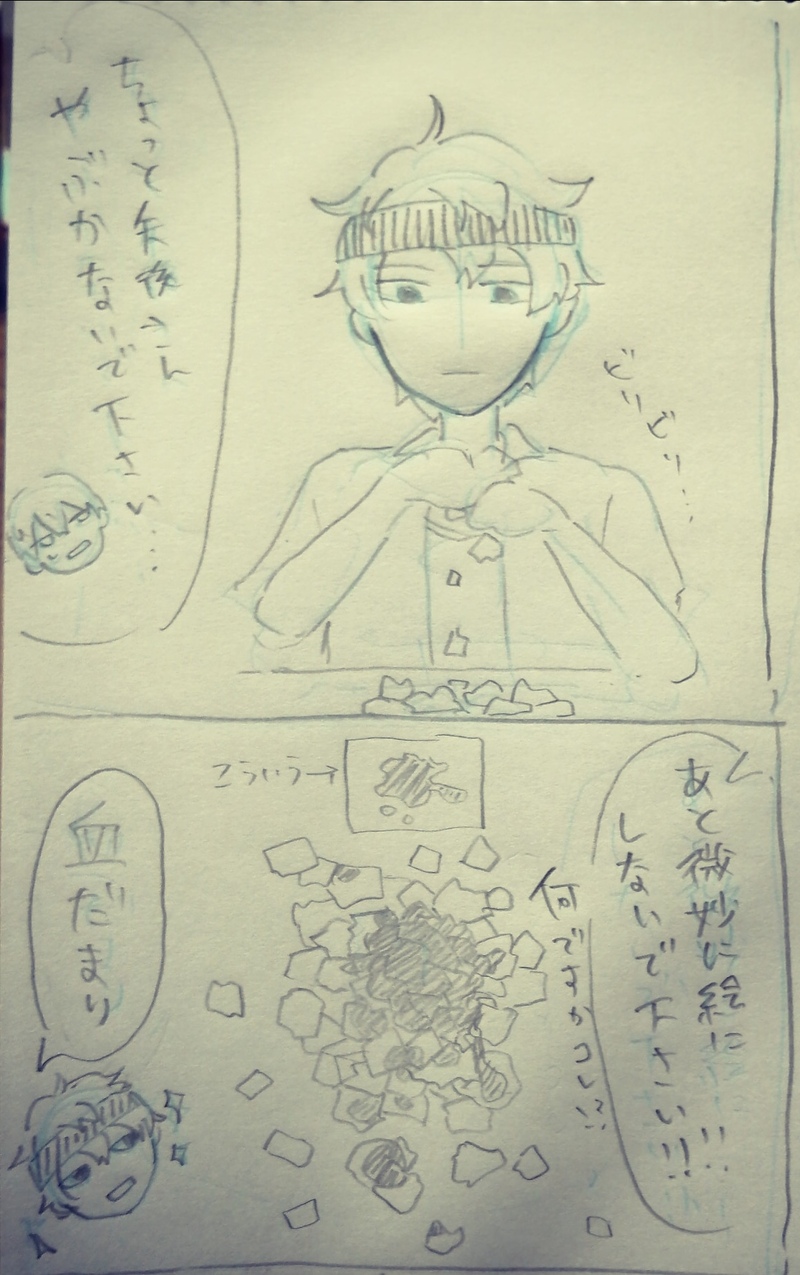 ちょっと矢後さん
やぶかないで下さい…
どりどり…
あと微妙に絵に
しないで下さい!!
何ですかコレ!?
こういう→
血だまり